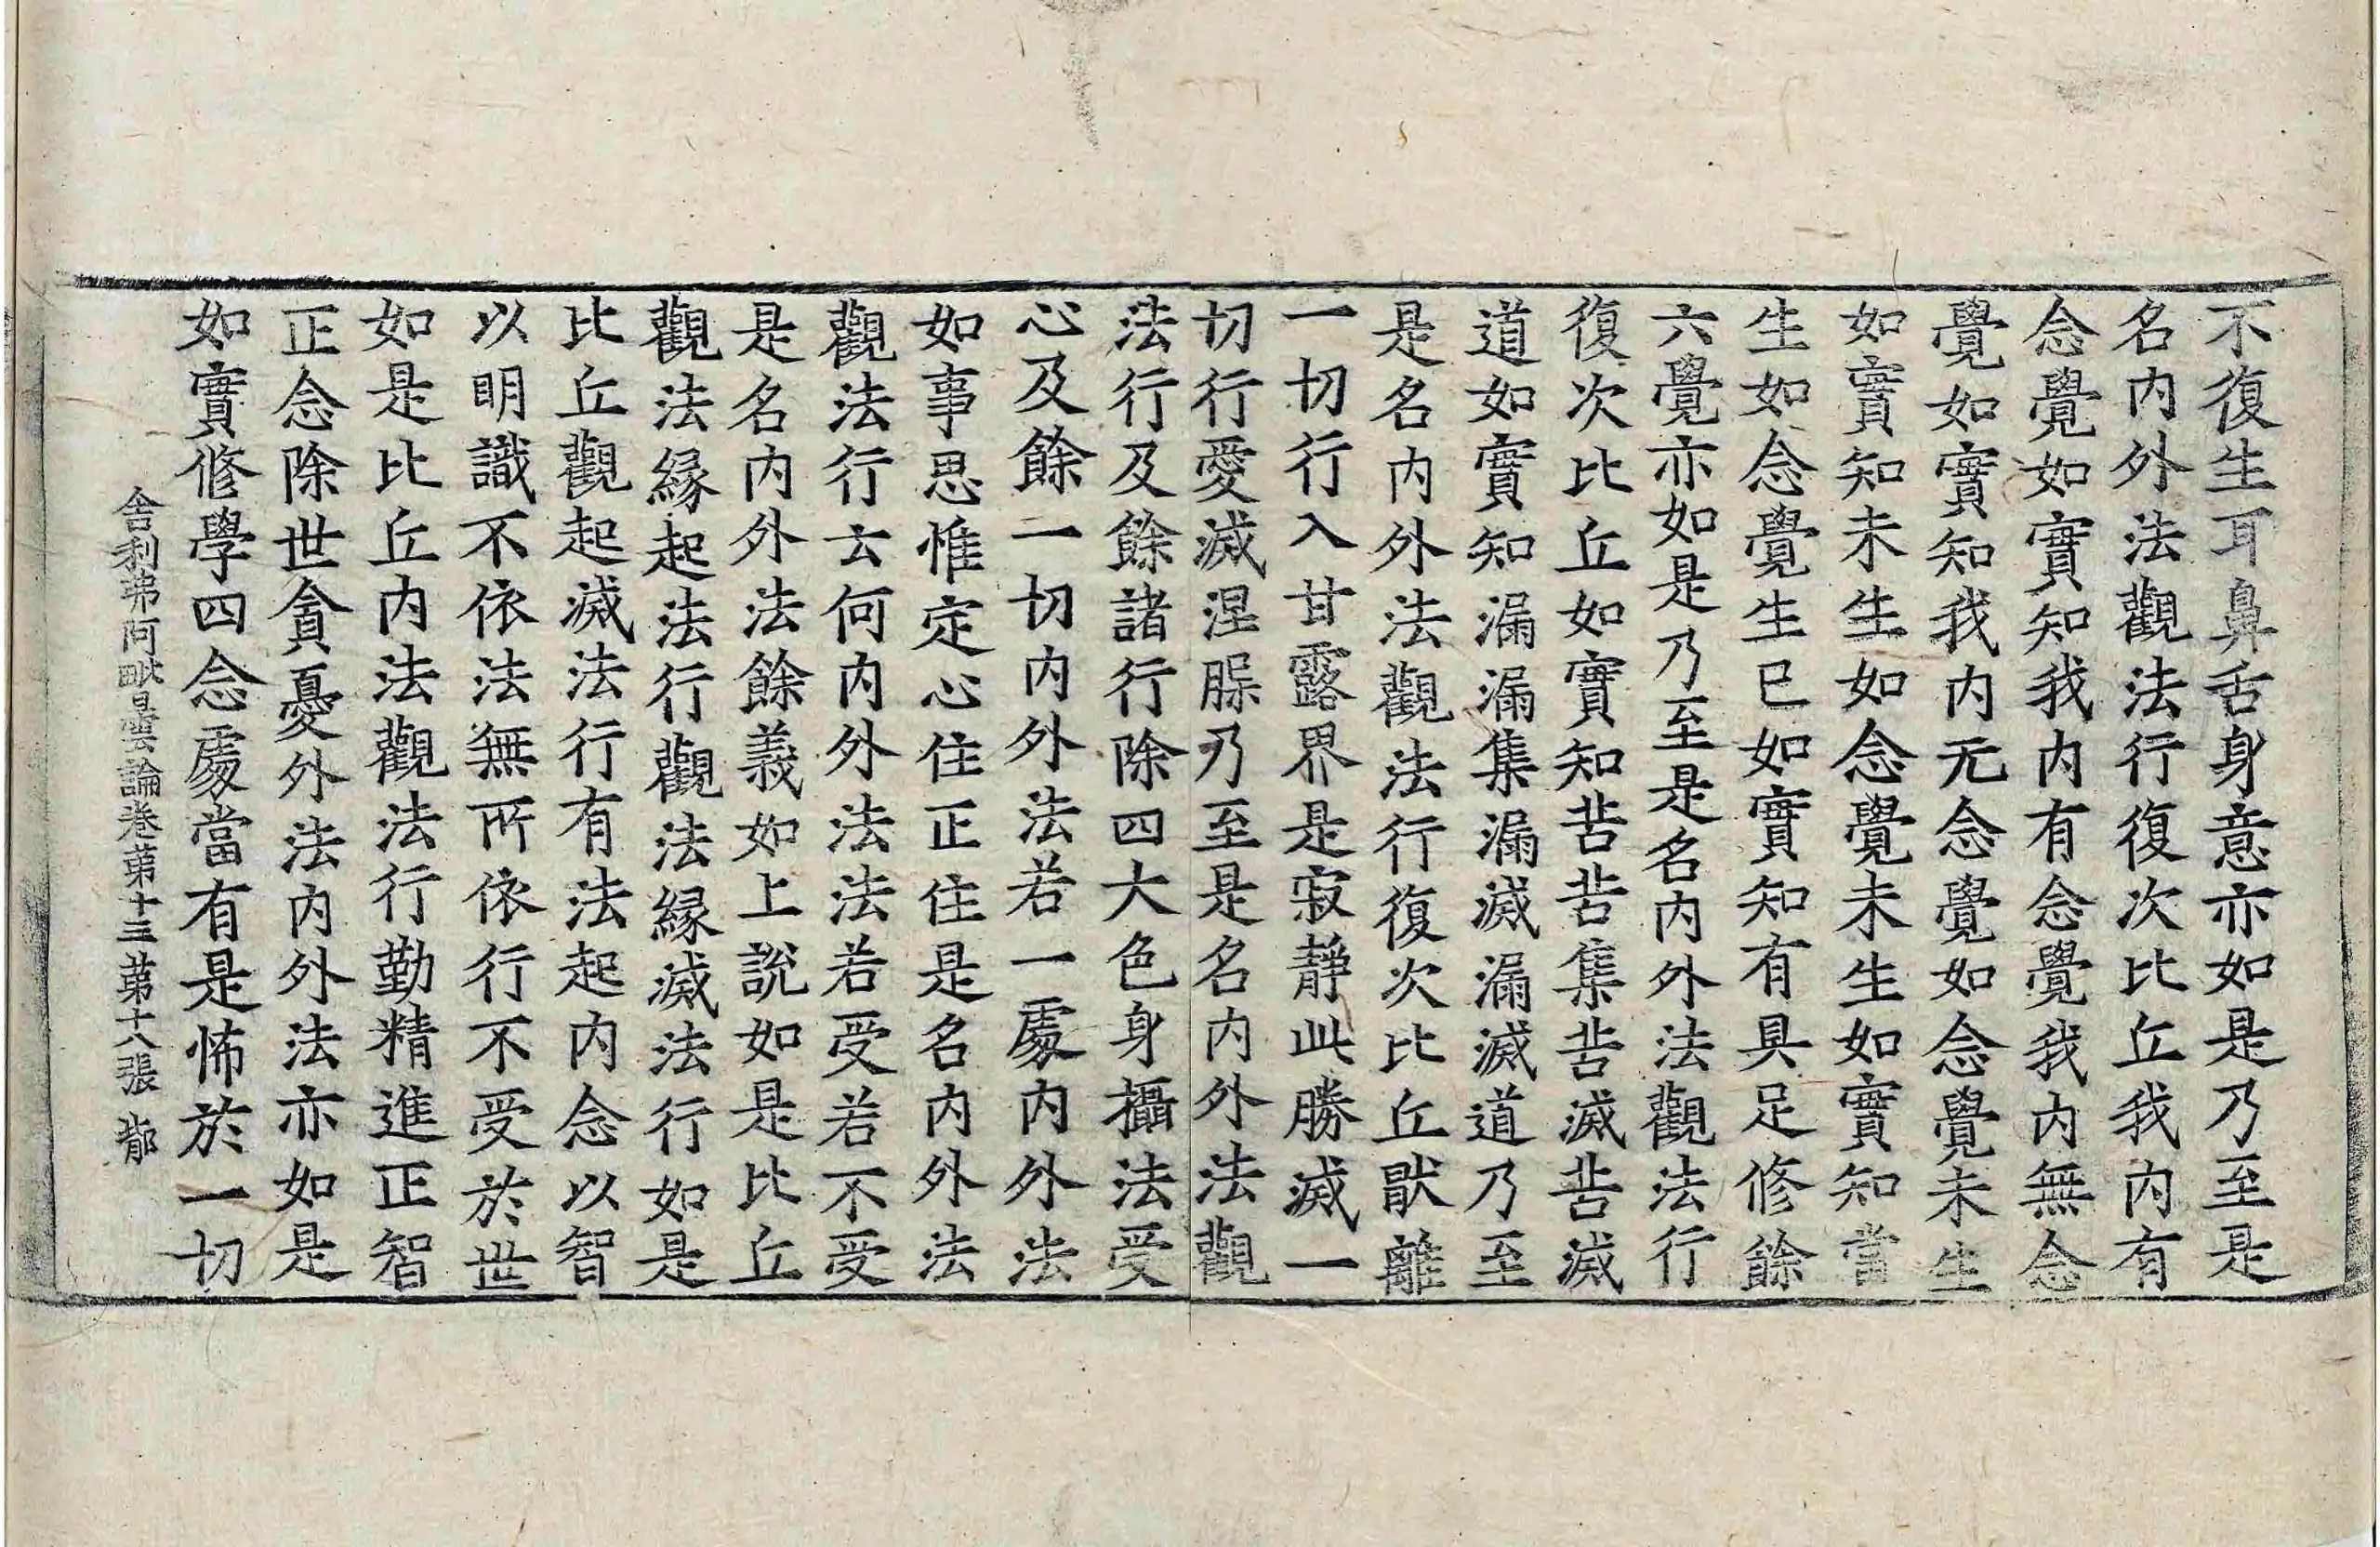 不復生耳鼻舌身意亦如是乃至是
名内外法觀法行復次比丘我内有
念覺如實知我内有念覺我内無念
覺如實知我内无念覺如念覺未生
如實知未生如念覺未生如實知當
生如念覺生已如實知有具足修餘
六覺亦如是乃至是名内外法觀法行
復次比丘如實知苦苦集苦滅苦滅
道如實知漏漏集漏滅漏滅道乃至
是名内外法觀法行復次比丘猒離
一切行入甘露界是寂靜此勝滅一
切行愛滅涅槃乃至是名内外法觀
法行及餘諸行除四大色身攝法受
心及餘一切内外法若一處内外法
如事思惟定心住正住是名内外法
觀法行云何内外法法若受若不受
是名内外法餘義如上說如是比丘
觀法緣起法行觀法緣滅法行如是
比丘觀起滅法行有法起内念以智
以明識不依法無所依行不受於世
如是比丘内法觀法行勤精進正智
正念除世貪憂外法内外法亦如是
如實修學四念處當有是怖於一切
舍利弗阿毗曇論卷第十三 第十八張 郁